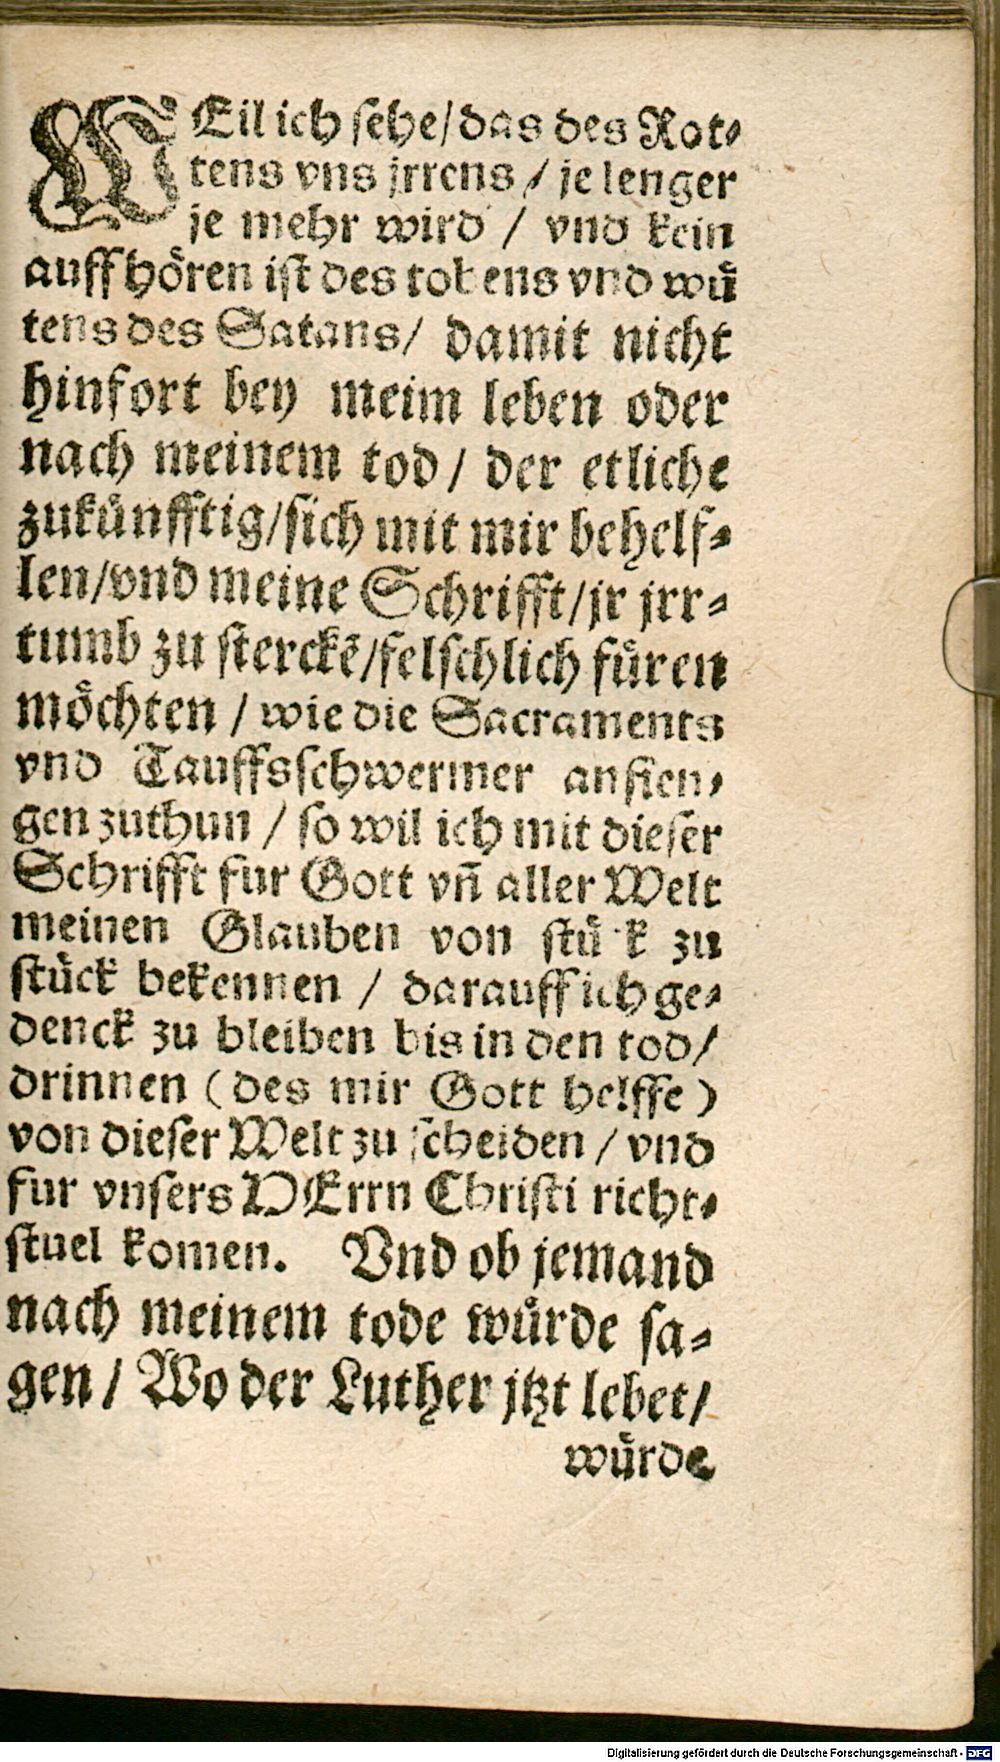 WEil ich sehe/das des Rot⸗
tens vns jrrens / je lenger
je mehr wird / vnd kein
auff hoͤren ist des tobens vnd wuͤ
tens des Satans/ damit nicht
hinfort bey meim leben oder
nach meinem tod/ der etliche
zukuͤnfftig/sich mit mir behelf⸗
len/vnd meine Schrifft/jr jrr⸗
tumb zu sterckē/felschlich fuͤren
moͤchten / wie die Sacraments
vnd Tauffsschwermer anfien⸗
gen zuthun / so wil ich mit dieser
Schrifft fur Gott vñ aller Welt
meinen Glauben von stuͤ k zu
stuͤck bekennen / darauff ich ge⸗
denck zu bleiben bis in den tod/
drinnen (des mir Gott helffe)
von dieser Welt zu scheiden / vnd
fur vnsers HErrn Christi richt⸗
stuel komen. Vnd ob jemand
nach meinem tode wuͤrde sa⸗
gen/ Wo der Luther jtzt lebet/
wuͤrde
Digitalisierung gefördert durch die Deutsche Forschungsgemeinschaft - DFG